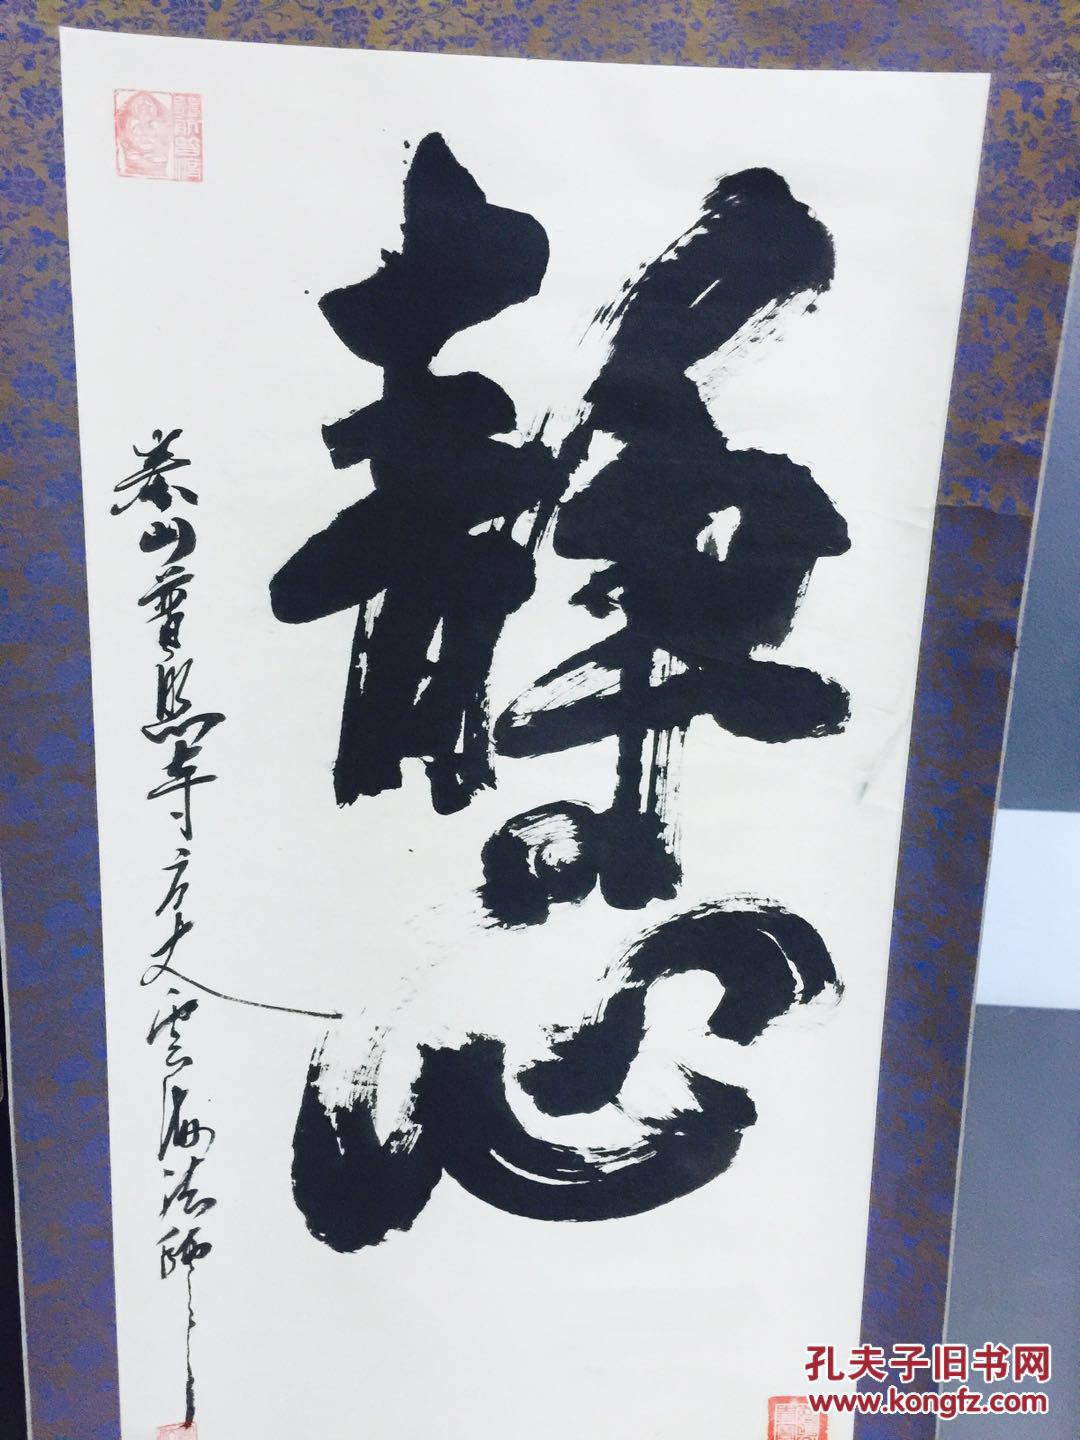 静心
泰山普照寺方丈云海法師
孔夫子旧书网
www.kongfz.com